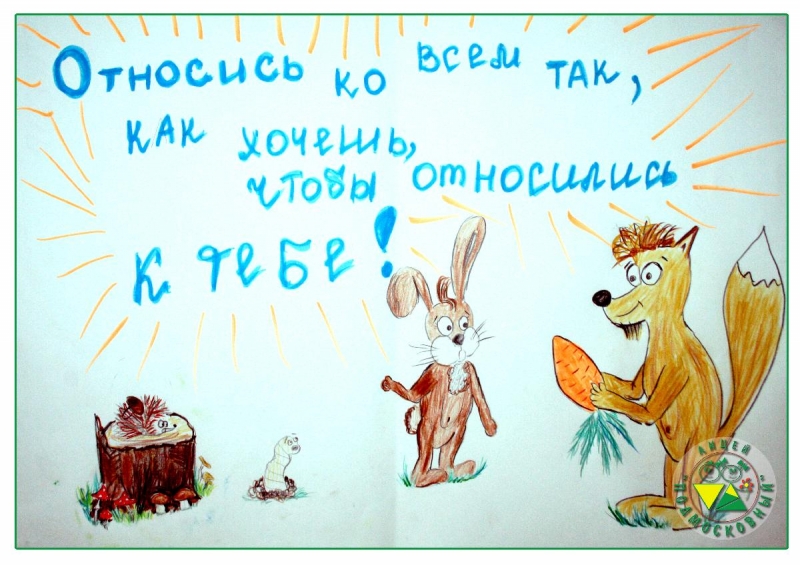 Относись ко всем так,
как хочешь,
чтобы относились
к тебе!
ЛИЦЕЙ
"ПОДМОСКОВНЫЙ"